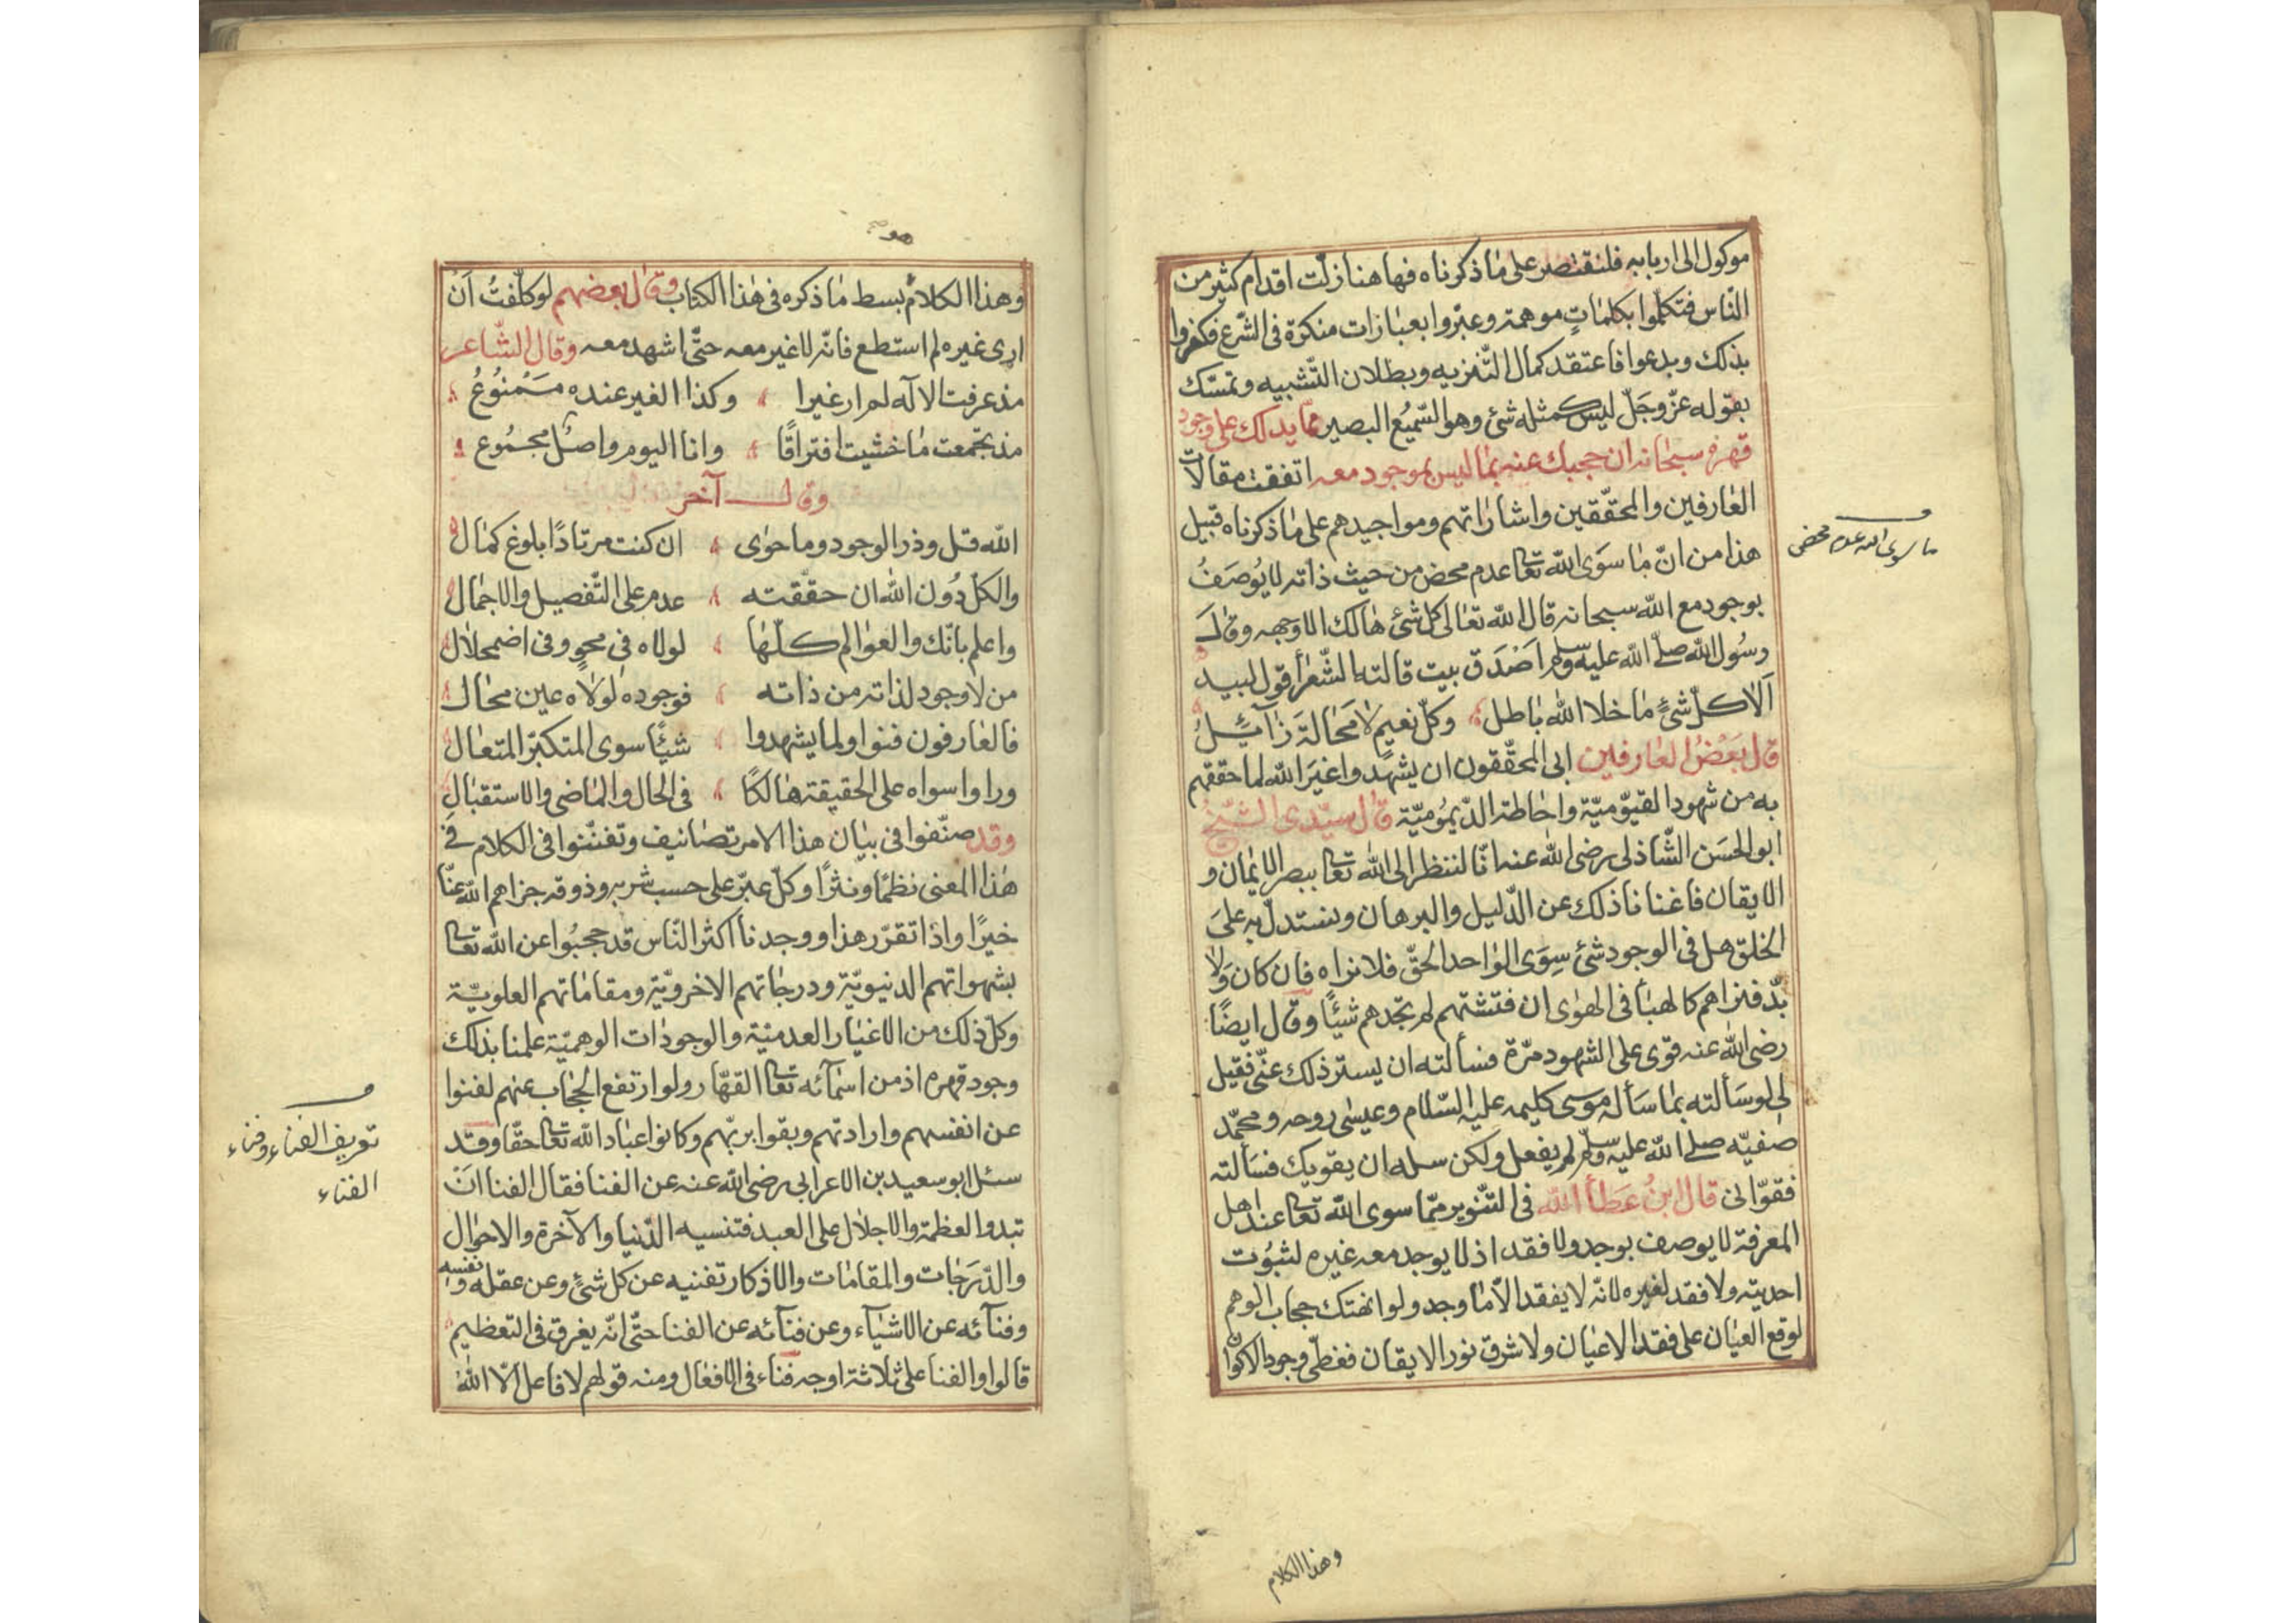 موكول الى اربابه فلنقتصر على ما ذكرناه فها هنا زلّت اقدام كثير من
النّاس فتكلّموا بكلماتٍ موهمة وعبّروا بعبارات منكرة فى الشّرع فكفروا
بذلك وبدعوا فاعتقد كمال التّنزيه وبطلان التّشبيه وتمسّك
بقوله عزّ وجلّ ليس كمثله شئ وهو السّميع البصير ممّا يدلك على وجود
قهره سبحانه ان حجبك عنه بما ليس بموجود معه اتفقت مقالات
العارفين والمحقّقين واشاراتهم ومواجيدهم على ما ذكرناه قبيل
هذا من انّ ما سوى الله تعالى عدم محض من حيث ذاته لا يوصف
بوجود مع الله سبحانه قال الله تعالى كل شئ هالك الا وجهه وقال
رسول الله صلى الله عليه وسلم اصدق بيت قالته الشّعرأ قول لبيد
ألا كلّ شئٍ ما خلا الله باطل وكلّ نعيمٍ لا محالة زآئل
قال بعض العارفين ابى المحقّقون ان يشهدوا غير الله لما حققهم
به من شهود القيّوميّة واحاطة الدّيموميّة قال سيّدى الشّيخ
ابو الحسن الشّاذلى رضى الله عنه انّا لننظر الى الله تعالى ببصر الايمان و
الايقان فاغنانا ذلك عن الدّليل والبرهان ونستدلّ به على
الخلق هل فى الوجود شئ سوى الواحد الحقّ فلا نراه فان كان ولا
بدّ فنراهم كالهبأ فى الهوى ان فتشتهم لم تجدهم شيئًا وقال ايضًا
رضى الله عنه قوى على الشهود مرّة فسألته ان يستر ذلك عنّى فقيل
لى لو سألته بما سأله موسى كليمه عليه السّلام وعيسى روحه ومحمّد
صفيّه صلى الله عليه وسلم لم يفعل ولكن سله ان يقويك فسألته
فقوّانى قال ابن عطأ الله فى التّنوير ممّا سوى الله تعالى عند اهل
المعرفة لا يوصف بوجد ولا فقد اذ لا يوجد معه غيره لثبوت
احديته ولا فقد لغيره لانّه لا يفقد الّا ما وجد ولو انهتك حجاب الوهم
لوقع العيان على فقد الاعيان ولاشرق نور الايقان فغطّى وجود الاكوان
ما سوى الله عدم محض
وهذا الكلام
وهذا الكلام بسط ما ذكره فى هذا الكتاب وقال بعضهم لو كلّفت أن
ارى غيره لم استطع فانّه لا غير معه حتّى اشهد معه وقال الشّاعر
مذ عرفت الاله لم ار غيرا وكذا الغير عنده ممنوع
مذ تجمعت ما خشيت افتراقًا وانا اليوم واصل مجموع
وقال آخر
الله قل وذر الوجود وما حوى ان كنت مرتادًا بلوغ كمال
والكلّ دون الله ان حققته عدم على التّفصيل والاجمال
واعلم بانّك والعوالم كلّها لولاه فى محوٍ وفى اضمحلال
من لا وجود لذاته من ذاته فوجوده لولاه عين محال
فالعارفون فنوا ولما يشهدوا شيئًا سوى المتكبّر المتعال
وراوا سواه على الحقيقة هالكًا فى الحال والماضى والاستقبال
وقد صنّفوا فى بيان هذا الامر تصانيف وتفنّنوا فى الكلام فى
هذا المعنى نظمًا ونثرًا وكلّ عبّر على حسب شربه وذوقه جزاهم الله عنّا
خيرًا واذا تقرّر هذا ووجدنا اكثر النّاس قد حجبوا عن الله تعالى
بشهواتهم الدنيويّة ودرجاتهم الاخرويّة ومقاماتهم العلويّة
وكلّ ذلك من الاغيار العدميّة والوجودات الوهميّة علمنا بذلك
وجود قهره اذ من اسمآئه تعالى القهّار ولو ارتفع الحجاب عنهم لفنوا
عن انفسهم وارادتهم وبقوا بربّهم وكانوا عباد الله تعالى حقّا وقد
سئل ابو سعيد بن الاعرابى رضى الله عنه عن الفنا فقال الفنا ان
تبدو العظمة والاجلال على العبد فتنسيه الدّنيا والآخرة والاحوال
والدّرجات والمقامات والاذكار تفنيه عن كل شئٍ وعن عقله ونفسه
وفنآئه عن الاشيآء وعن فنآئه عن الفنا حتّى انّه يغرق فى التعظيم
قالوا والفنا على ثلاثة اوجه فناء فى الافعال ومنه قولهم لا فاعل الّا الله
تعريف الفناء وفناء
الفناء